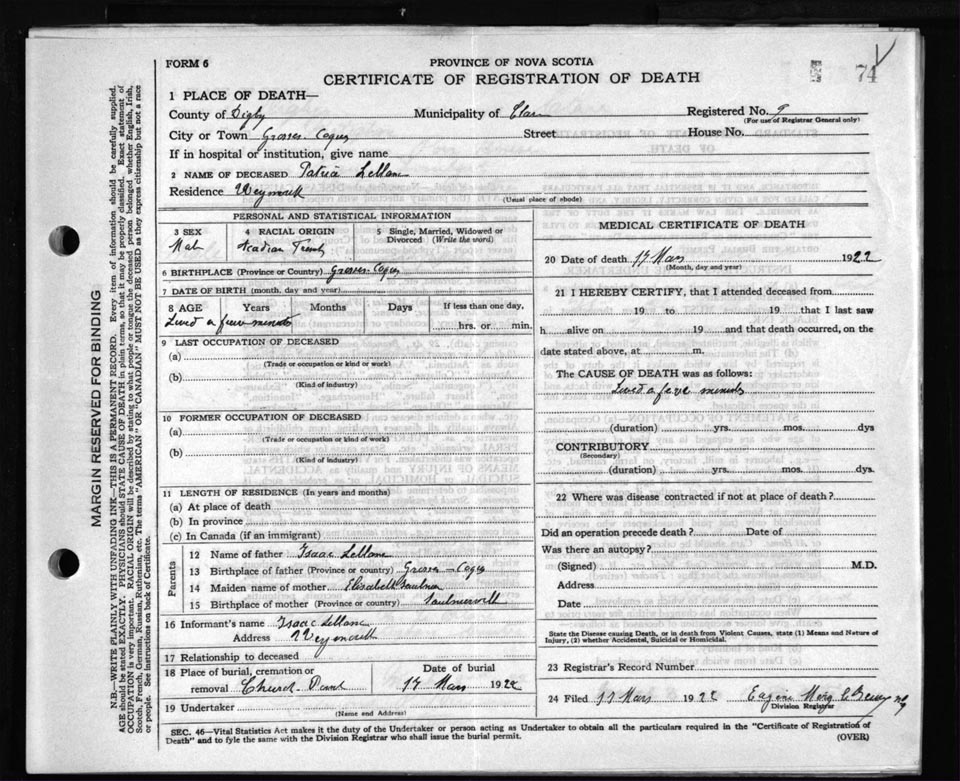 FORM 6
PROVINCE OF NOVA SCOTIA
CERTIFICATE OF REGISTRATION OF DEATH
74
1 PLACE OF DEATH—
County of Digby Municipality of Clare Registered No. 9
(For use of Registrar General only)
City or Town Grosses Coques Street House No.
If in hospital or institution, give name
2 NAME OF DECEASED Patria LeBlanc
Residence Weymouth
(Usual place of abode)
PERSONAL AND STATISTICAL INFORMATION
3 SEX 4 RACIAL ORIGIN 5 Single, Married, Widowed or Divorced (Write the word)
Male Acadian French
6 BIRTHPLACE (Province or Country) Grosses Coques
7 DATE OF BIRTH (month, day and year)
8 AGE Years Months Days If less than one day,
Lived a few minutes hrs. or min.
9 LAST OCCUPATION OF DECEASED
(a)
(Trade or occupation or kind of work)
(b)
(Kind of industry)
10 FORMER OCCUPATION OF DECEASED
(a)
(Trade or occupation or kind of work)
(b)
(Kind of industry)
11 LENGTH OF RESIDENCE (In years and months)
(a) At place of death
(b) In province
(c) In Canada (if an immigrant)
Parents
12 Name of father Isaac LeBlanc
13 Birthplace of father (Province or Country) Grosses-Coques
14 Maiden name of mother Elisabeth Saulnier
15 Birthplace of mother (Province or country) Saulnierville
16 Informant's name Isaac LeBlanc
Address Weymouth
17 Relationship to deceased
18 Place of burial, cremation or Date of burial
removal Church Point 17 Mars 1922
19 Undertaker
(Name and Address)
MEDICAL CERTIFICATE OF DEATH
20 Date of death 17 Mars 1922
(Month, day and year)
21 I HEREBY CERTIFY, that I attended deceased from
19 to 19 that I last saw
h alive on 19 and that death occurred, on the
date stated above, at m.
The CAUSE OF DEATH was as follows:
Lived a few minutes
(duration) yrs. mos. dys
CONTRIBUTORY
(Secondary)
(duration) yrs. mos. dys.
22 Where was disease contracted if not at place of death?
Did an operation precede death? Date of
Was there an autopsy?
(Signed) M.D.
Address
Date
State the Disease causing Death, or in death from Violent Causes, state (1) Means and Nature of
Injury, (2) whether Accidental, Suicidal or Homicidal.
23 Registrar's Record Number
24 Filed 17 Mars 1922
Division Registrar
SEC. 46—Vital Statistics Act makes it the duty of the Undertaker or person acting as Undertaker to obtain all the particulars required in the "Certificate of Registration of
Death" and to fyle the same with the Division Registrar who shall issue the burial permit. (OVER)
MARGIN RESERVED FOR BINDING
N.B.—WRITE PLAINLY WITH UNFADING INK—THIS IS A PERMANENT RECORD. Every item of information should be carefully supplied.
AGE should be stated EXACTLY. PHYSICIANS should STATE CAUSE OF DEATH in plain terms, so that it may be properly classified. Exact statement of
OCCUPATION is very important. RACIAL ORIGIN will be described by stating to what people or tongue the deceased person belonged whether English, Irish,
Scotch, French, German, Russian, Ruthenian, etc. The terms "AMERICAN" OR "CANADIAN" MUST NOT BE USED as they express citizenship but not a race
or people. See instructions on back of Certificate.